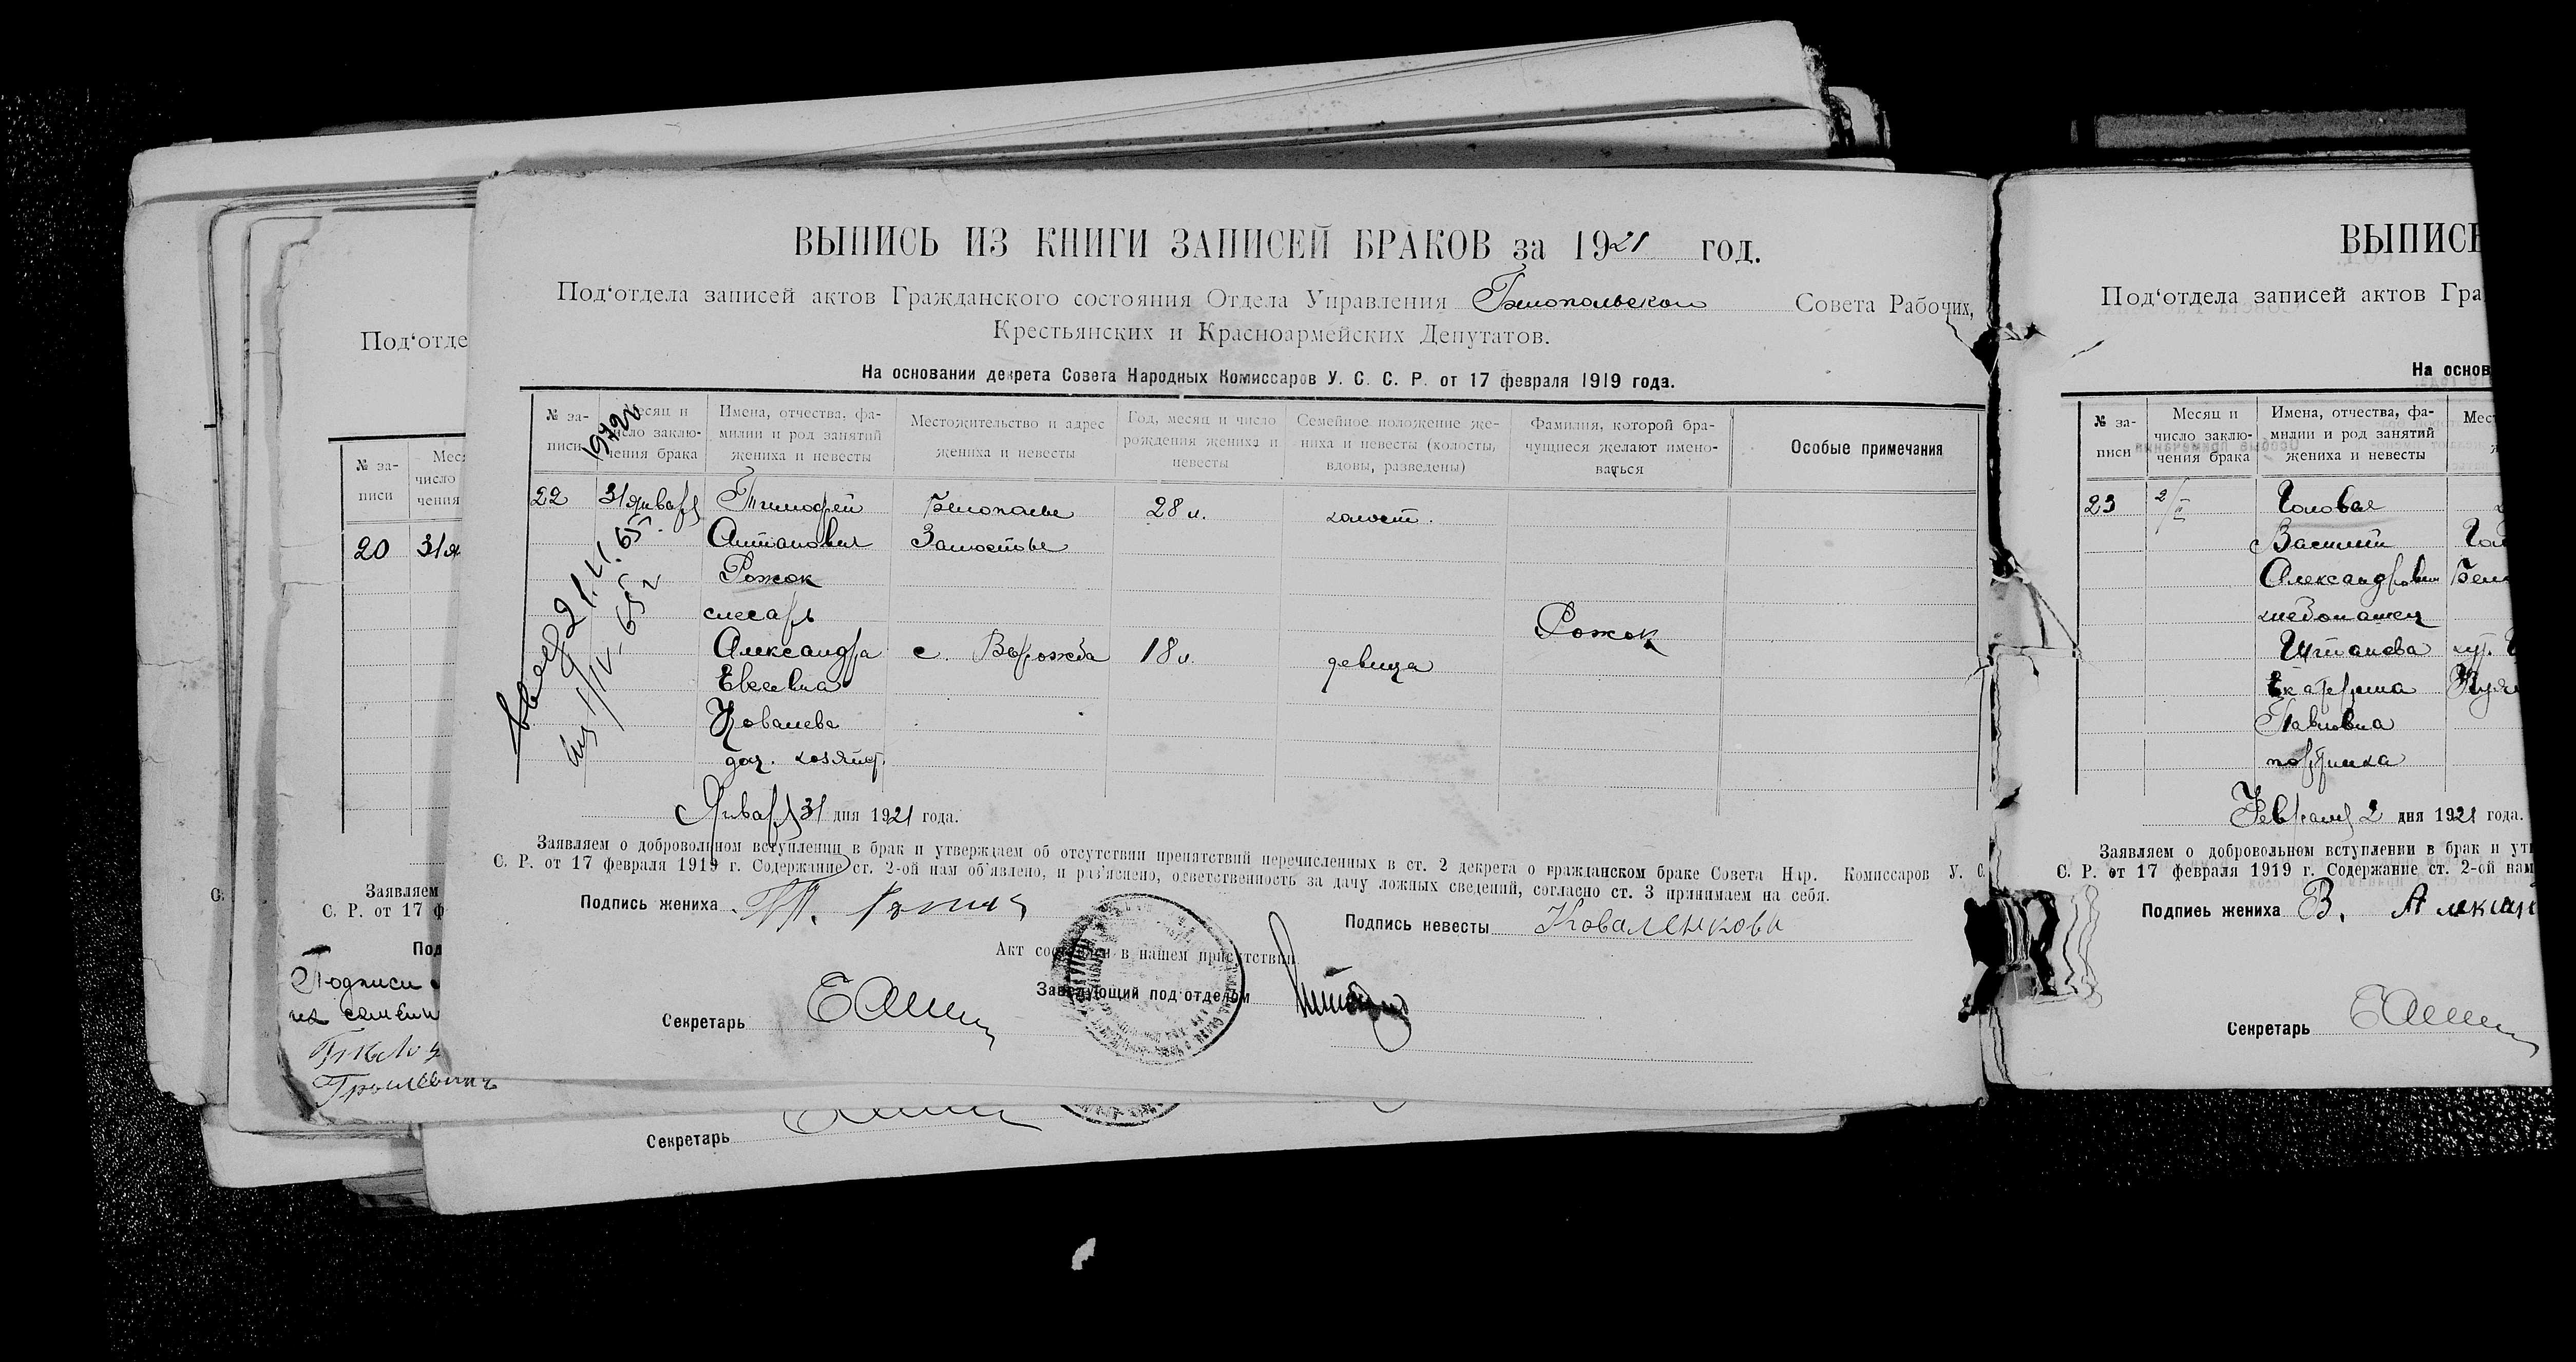 ВЫПИСЬ ИЗ КНИГИ ЗАПИСЕЙ БРАКОВ за 1921 год.
Под‘отдела записей актов Гражданского состояния Отдела Управления Белопольском Совета Рабочих,
Крестьянских и Красноармейских Депутатов.
На основании декрета Совета Народных Комиссаров У. С. С. Р. от 17 февраля 1919 года.
№ за-писи
Месяц и число заклю-чения брака
Имена, отчества, фа-милии и род занятий жениха и невесты
Местожительство и адрес жениха и невесты
Год, месяц и число рождения жениха и невесты
Семейное положение же-ниха и невесты (холосты, вдовы, разведены)
Фамилия, которой бра-чущиеся желают имено-ваться
Особые примечания
22 31 январь Тимофей Белополье 28 л. холост.
Антонович Замостье
Рожок
слесарь
Рожок
Александра с. Ворожба 18 л. девица
Евсеевна
Ковалева
дом. хозяйст.
Январь 31 дня 1921 года.
Заявляем о добровольном вступлении в брак и утверждаем об отсутствии препятствий перечисленных в ст. 2 декрета о гражданском браке Совета Нар. Комиссаров У. С.
С. Р. от 17 февраля 1919 г. Содержание ст. 2-ой нам об‘явлено, и раз‘яснено, ответственность за дачу ложных сведений, согласно ст. 3 принимаем на себя.
Подпись жениха Т.
Подпись невесты Коваленкова
Акт составлен в нашем присутствии.
Заведующий под‘отделом
Секретарь
Под‘отде
№ за-писи
Мес число чения
20 31 я
Заявляем
С. Р. от 17 ф
Под
Подписи
Секретарь
ВЫПИСЬ
Под‘отдела записей актов Гра
На основ
№ за-писи
Месяц и число заклю-чения брака
Имена, отчества, фа-милии и род занятий жениха и невесты
Мест
23 2/II Головня
Василий
Александрович Бело
хлебопашец
Штанева хут.
Екатерина
Павловна
портниха
Февраль 2 дня 1921 года.
Заявляем о добровольном вступлении в брак и утв
С. Р. от 17 февраля 1919 г. Содержание ст. 2-ой нам
Подпись жениха В.
Секретарь